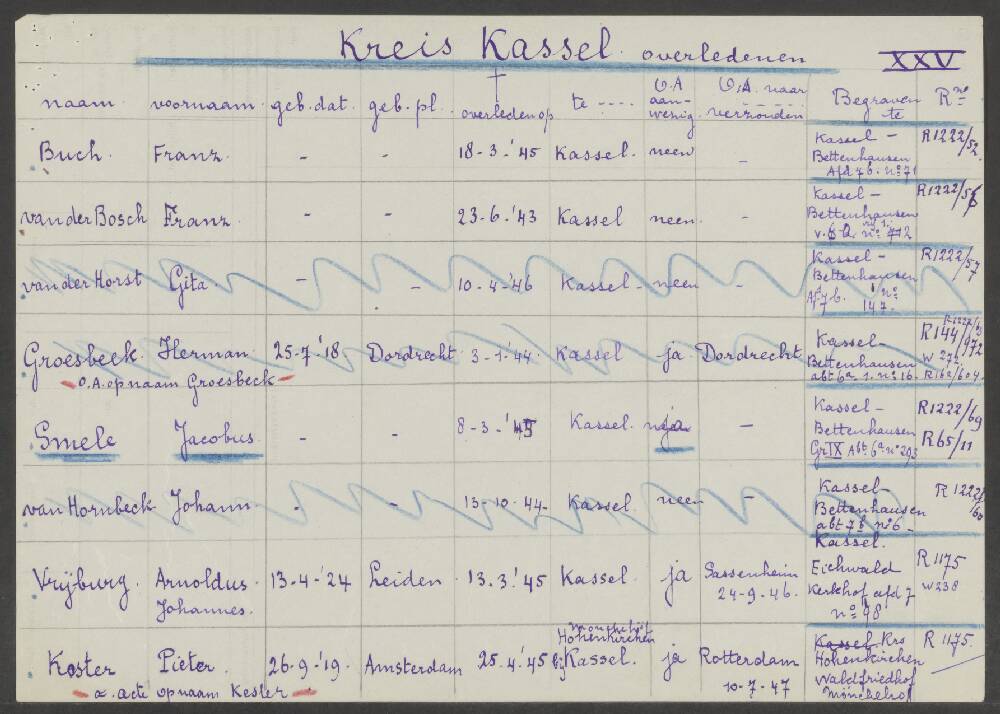 Kreis Kassel. overledenen XXV
naam. voornaam. geb. dat. geb. pl. † overleden op te ---- O.A aan-wezig. O.A. naar verzonden Begraven te R no
Buch. Franz. - - 18-3-'45 Kassel. neen - Kassel - R1222/52.
Bettenhausen
Afd 7b. no 71
van der Bosch Franz. - - 23-6-'43 Kassel neen. - Kassel - R1222/56
Bettenhausen
no 412
van der Horst Gita. - - 10-4-'46 Kassel - neen - Kassel - R1222/57
Bettenhausen
Afd 7 b. no
147.
Groesbeek. Herman. 25-7-'18 Dordrecht 3-1-'44. Kassel ja Dordrecht. Kassel - R144/972
Bettenhausen W 272,
abt 6a 1. no 16. R162/604.
O.A. op naam Groesbeck
Smele Jacobus. - - 8-3-'45 Kassel. ja - Kassel - R1222/69
Bettenhausen R65/11
Gr IX Abt. 6a no 293
van Hornbeck Johann. - - 13-10-44. Kassel neen - Kassel - R1222/60
Bettenhausen
abt 7b no 6 -
Vrijburg. Arnoldus Johannes. 13-4-'24 Leiden 13.3.'45 Kassel. ja Sassenheim 24-9-46. Kassel. R1175
Eichwald W238
Kerkhof afd 7
no 98
Koster Pieter. 26-9-'19. Amsterdam 25.4.'45 Mönchehof Hohenkirchen bij Kassel. ja Rotterdam 10-7-47 Kassel Krs R 1175.
Hohenkirchen
Waldfriedhof
Mönchehof
o. acte op naam Kester